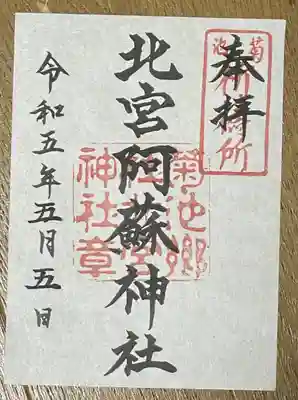 奉拝
北宮阿蘇神社
令和五年五月五日
菊池郷
神社章